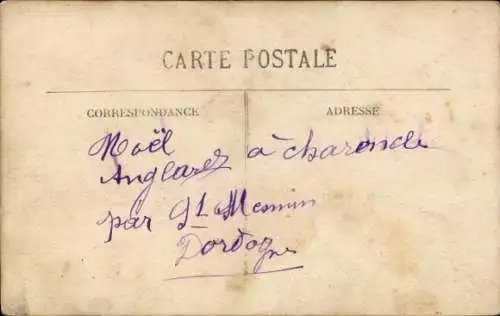 CARTE POSTALE
CORRESPONDANCE
ADRESSE
Noël
Anglarez à charonde
par St Mesmin
Dordogne